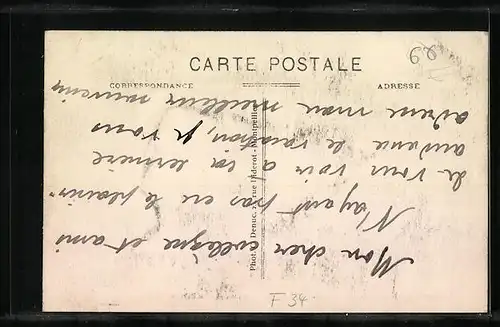 CARTE POSTALE
CORRESPONDANCE
ADRESSE
Mon cher collègue et ami
N'ayant pas eu le plaisir
de vous voir à la dernière
audience le vacation, je vous
adresse mon meilleur souvenir
Phot. L. Denuc, rue Diderot - Montpellier
F 34